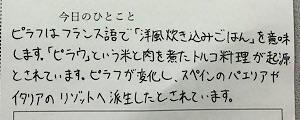 今日のひとこと
ピラフはフランス語で「洋風炊き込みごはん」を意味
します。「ピラウ」という米と肉を煮たトルコ料理が起源
とされています。ピラフが変化し、スペインのパエリアや
イタリアのリゾットへ派生したとされています。